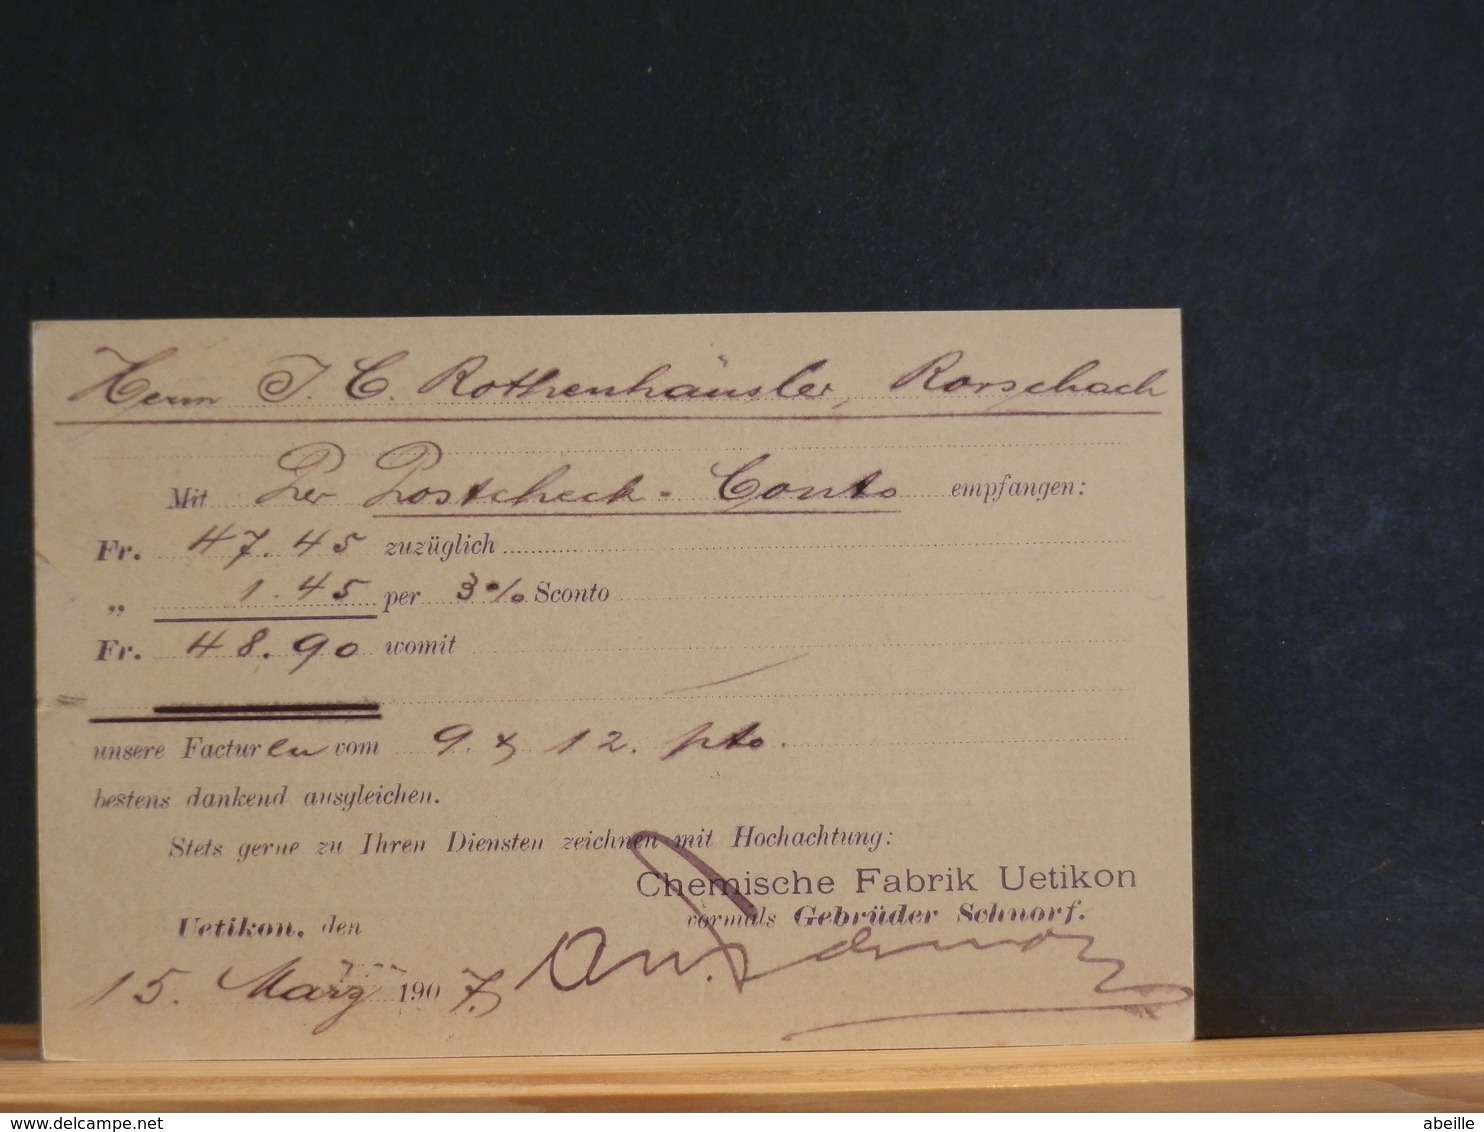 Herrn J. C. Rothenhäusler, Rorschach
Mit Per Postcheck-Conto empfangen:
Fr. 47.45 zuzüglich
„ 1.45 per 3% Sconto
Fr. 48.90 womit
unsere Facturen vom 9. & 12. pto.
bestens dankend ausgleichen.
Stets gerne zu Ihren Diensten zeichnen mit Hochachtung:
Chemische Fabrik Uetikon
vormals Gebrüder Schnorf.
Uetikon, den
15. März 1907.
delcampe.net
abeille